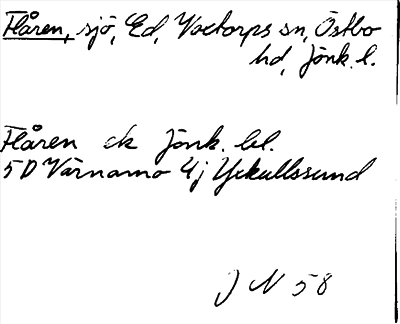 Flåren, sjö, Ed, Voxtorps sn, Östbo
hd, Jönk. l.
Flåren ek Jönk. bl.
5D Värnamo 4j Yxkullssund
J N 58